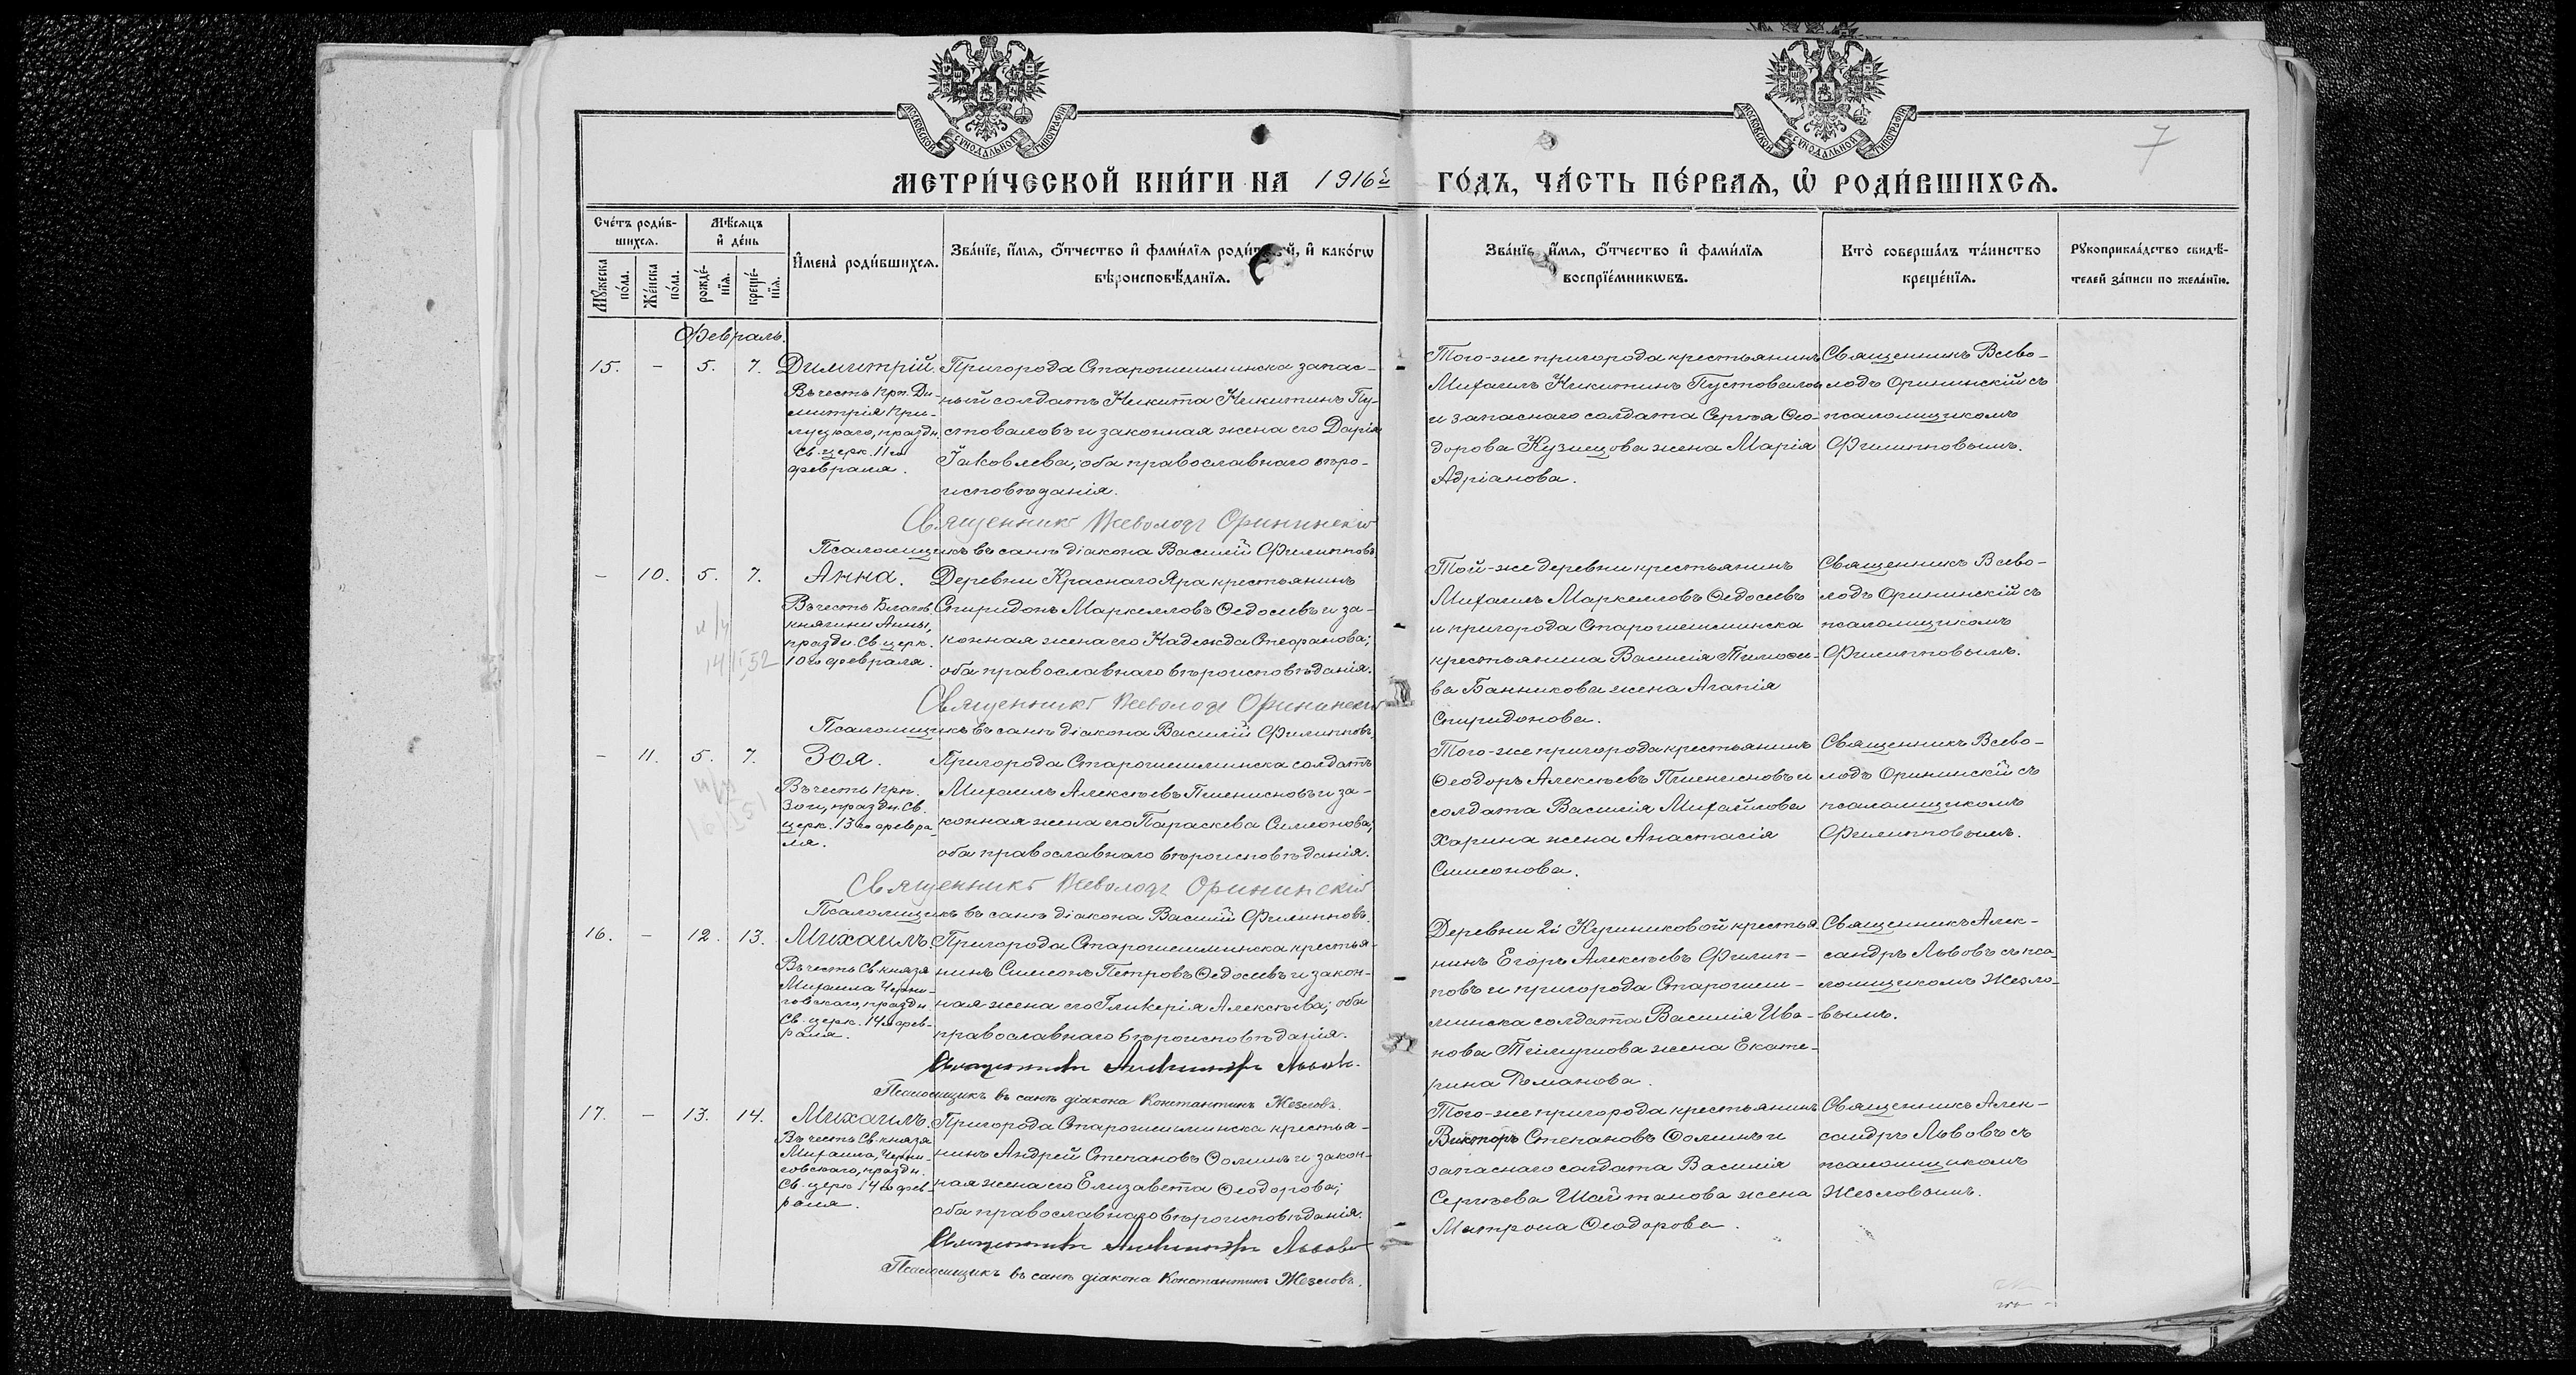 МОСКОВСКОЙ СѴНОДАЛЬНОЙ ТИПОГРАФІИ
МОСКОВСКОЙ СѴНОДАЛЬНОЙ ТИПОГРАФІИ
7
МЕТРИ́ЧЕСКОЙ КНИ́ГИ НА 1916й ГО́ДЪ, ЧА́СТЬ ПЕ́РВАѦ, Ѽ РОДИ́ВШИХСѦ.
Сче́тъ роди́вшихсѧ.
Мꙋ́жеска по́ла.
Же́нска по́ла.
Мѣ́сѧцъ и҆ де́нь
рожде́нїѧ.
креще́нїѧ.
И҆мена̀ роди́вшихсѧ.
Зва́нїе, и҆́мѧ, ѻ҆́тчество и҆ фами́лїѧ роди́телей, и҆ како́гѡ
вѣроисповѣ́данїѧ.
Зва́нїе, и҆́мѧ, ѻ҆́тчество и҆ фами́лїѧ
воспрїе́мникѡвъ.
Кто̀ соверша́лъ та́инство
креще́нїѧ.
Рꙋкоприкла́дство свидѣ́-
телей за́писи по жела́нїю.
Февраль.
15. - 5. 7. Димитрій.
Въ честь прп. Ди-
митрія При-
луцкаго, праздн.
Св. церк. 11го
февраля.
Пригорода Старошешминска запас-
ный солдатъ Никита Никитинъ Пу-
стоваловъ и законная жена его Дарія
Іаковлева; оба православнаго вѣро-
исповѣданія.
Священникъ Всеволодъ Орининскій
Псаломщикъ въ санѣ діакона Василій Филипповъ.
Того-же пригорода крестьянинъ
Михаилъ Никитинъ Пустоваловъ
и запаснаго солдата Сергѣя Ѳео-
дорова Кузнецова жена Марія
Адріанова.
Священникъ Всево-
лодъ Орининскій съ
псаломщикомъ
Филипповымъ.
- 10. 5. 7. Анна.
Въ честь Благов.
княгини Анны,
праздн. Св. церк.
10го февраля.
Деревни Краснаго Яра крестьянинъ
Спиридонъ Маркелловъ Ѳедосѣевъ и за-
конная жена его Надежда Стефанова;
оба православнаго вѣроисповѣданія.
Священникъ Всеволодъ Орининскій
Псаломщикъ въ санѣ діакона Василій Филипповъ.
Той-же деревни крестьянинъ
Михаилъ Маркелловъ Ѳедосѣевъ
и пригорода Старошешминска
крестьянина Василія Тимоѳе-
ва Банникова жена Агапія
Спиридонова.
Священникъ Всево-
лодъ Орининскій съ
псаломщикомъ
Филипповымъ.
- 11. 5. 7. Зоя.
Въ честь прп.
Зои, праздн. Св.
церк. 13го февра-
ля.
Пригорода Старошешминска солдатъ
Михаилъ Алексѣевъ Пшенисновъ и за-
конная жена его Параскева Симеонова;
оба православнаго вѣроисповѣданія.
Священникъ Всеволодъ Орининскій
Псаломщикъ въ санѣ діакона Василій Филипповъ.
Того-же пригорода крестьянинъ
Ѳеодоръ Алексѣевъ Пшенисновъ и
солдата Василія Михайлова
Харина жена Анастасія
Симеонова.
Священникъ Всево-
лодъ Орининскій съ
псаломщикомъ
Филипповымъ.
16. - 12. 13. Михаилъ.
Въ честь Св. князя
Михаила Черни-
говскаго, праздн.
Св. церк. 14го фев-
раля.
Пригорода Старошешминска крестья-
нинъ Симеонъ Петровъ Ѳедосѣевъ и закон-
ная жена его Гликерія Алексѣева; оба
православнаго вѣроисповѣданія.
Священникъ Александръ Львовъ.
Псаломщикъ въ санѣ діакона Константинъ Жезловъ.
Деревни 2й Кушниковой крестья-
нинъ Егоръ Алексѣевъ Филип-
повъ и пригорода Старошеш-
минска солдата Василія Ива-
нова жена Екате-
рина Романова.
Священникъ Алек-
сандръ Львовъ съ пса-
ломщикомъ Жезло-
вымъ.
17. - 13. 14. Михаилъ.
Въ честь Св. князя
Михаила, Черни-
говскаго, праздн.
Св. церк. 14го фев-
раля.
Пригорода Старошешминска крестья-
нинъ Андрей Степановъ Ѳоминъ и закон-
ная жена его Елизавета Ѳеодорова;
оба православнаго вѣроисповѣданія.
Священникъ Александръ Львовъ
Псаломщикъ въ санѣ діакона Константинъ Жезловъ.
Того-же пригорода крестьянинъ
Викторъ Степановъ Ѳоминъ и
запаснаго солдата Василія
Сергѣева Шайтанова жена
Матрона Ѳеодорова.
Священникъ Алек-
сандръ Львовъ съ
псаломщикомъ
Жезловымъ.